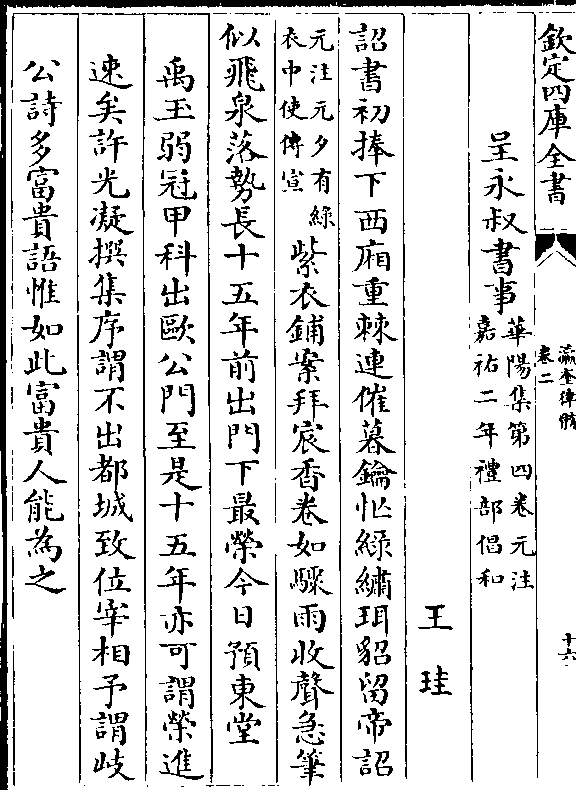 欽定四庫全書
瀛奎律髓
卷二
十六
呈永叔書事
華陽集第四卷元注
嘉祐二年禮部倡和
王珪
詔書初捧下西廂重棘連催暮鑰忙綠繡珥貂留帝詔
元注元夕有綠
衣中使傳宣
紫衣鋪案拜宸香卷如驟雨收聲急筆
似飛泉落勢長十五年前出門下最榮今日預東堂
禹玉弱冠甲科出歐公門至是十五年亦可謂榮進
速矣許光凝撰集序謂不出都城致位宰相予謂岐
公詩多富貴語惟如此富貴人能為之